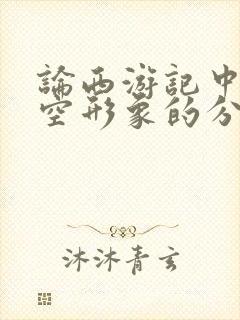 論西游記中
空形象的分
沐沐青玄